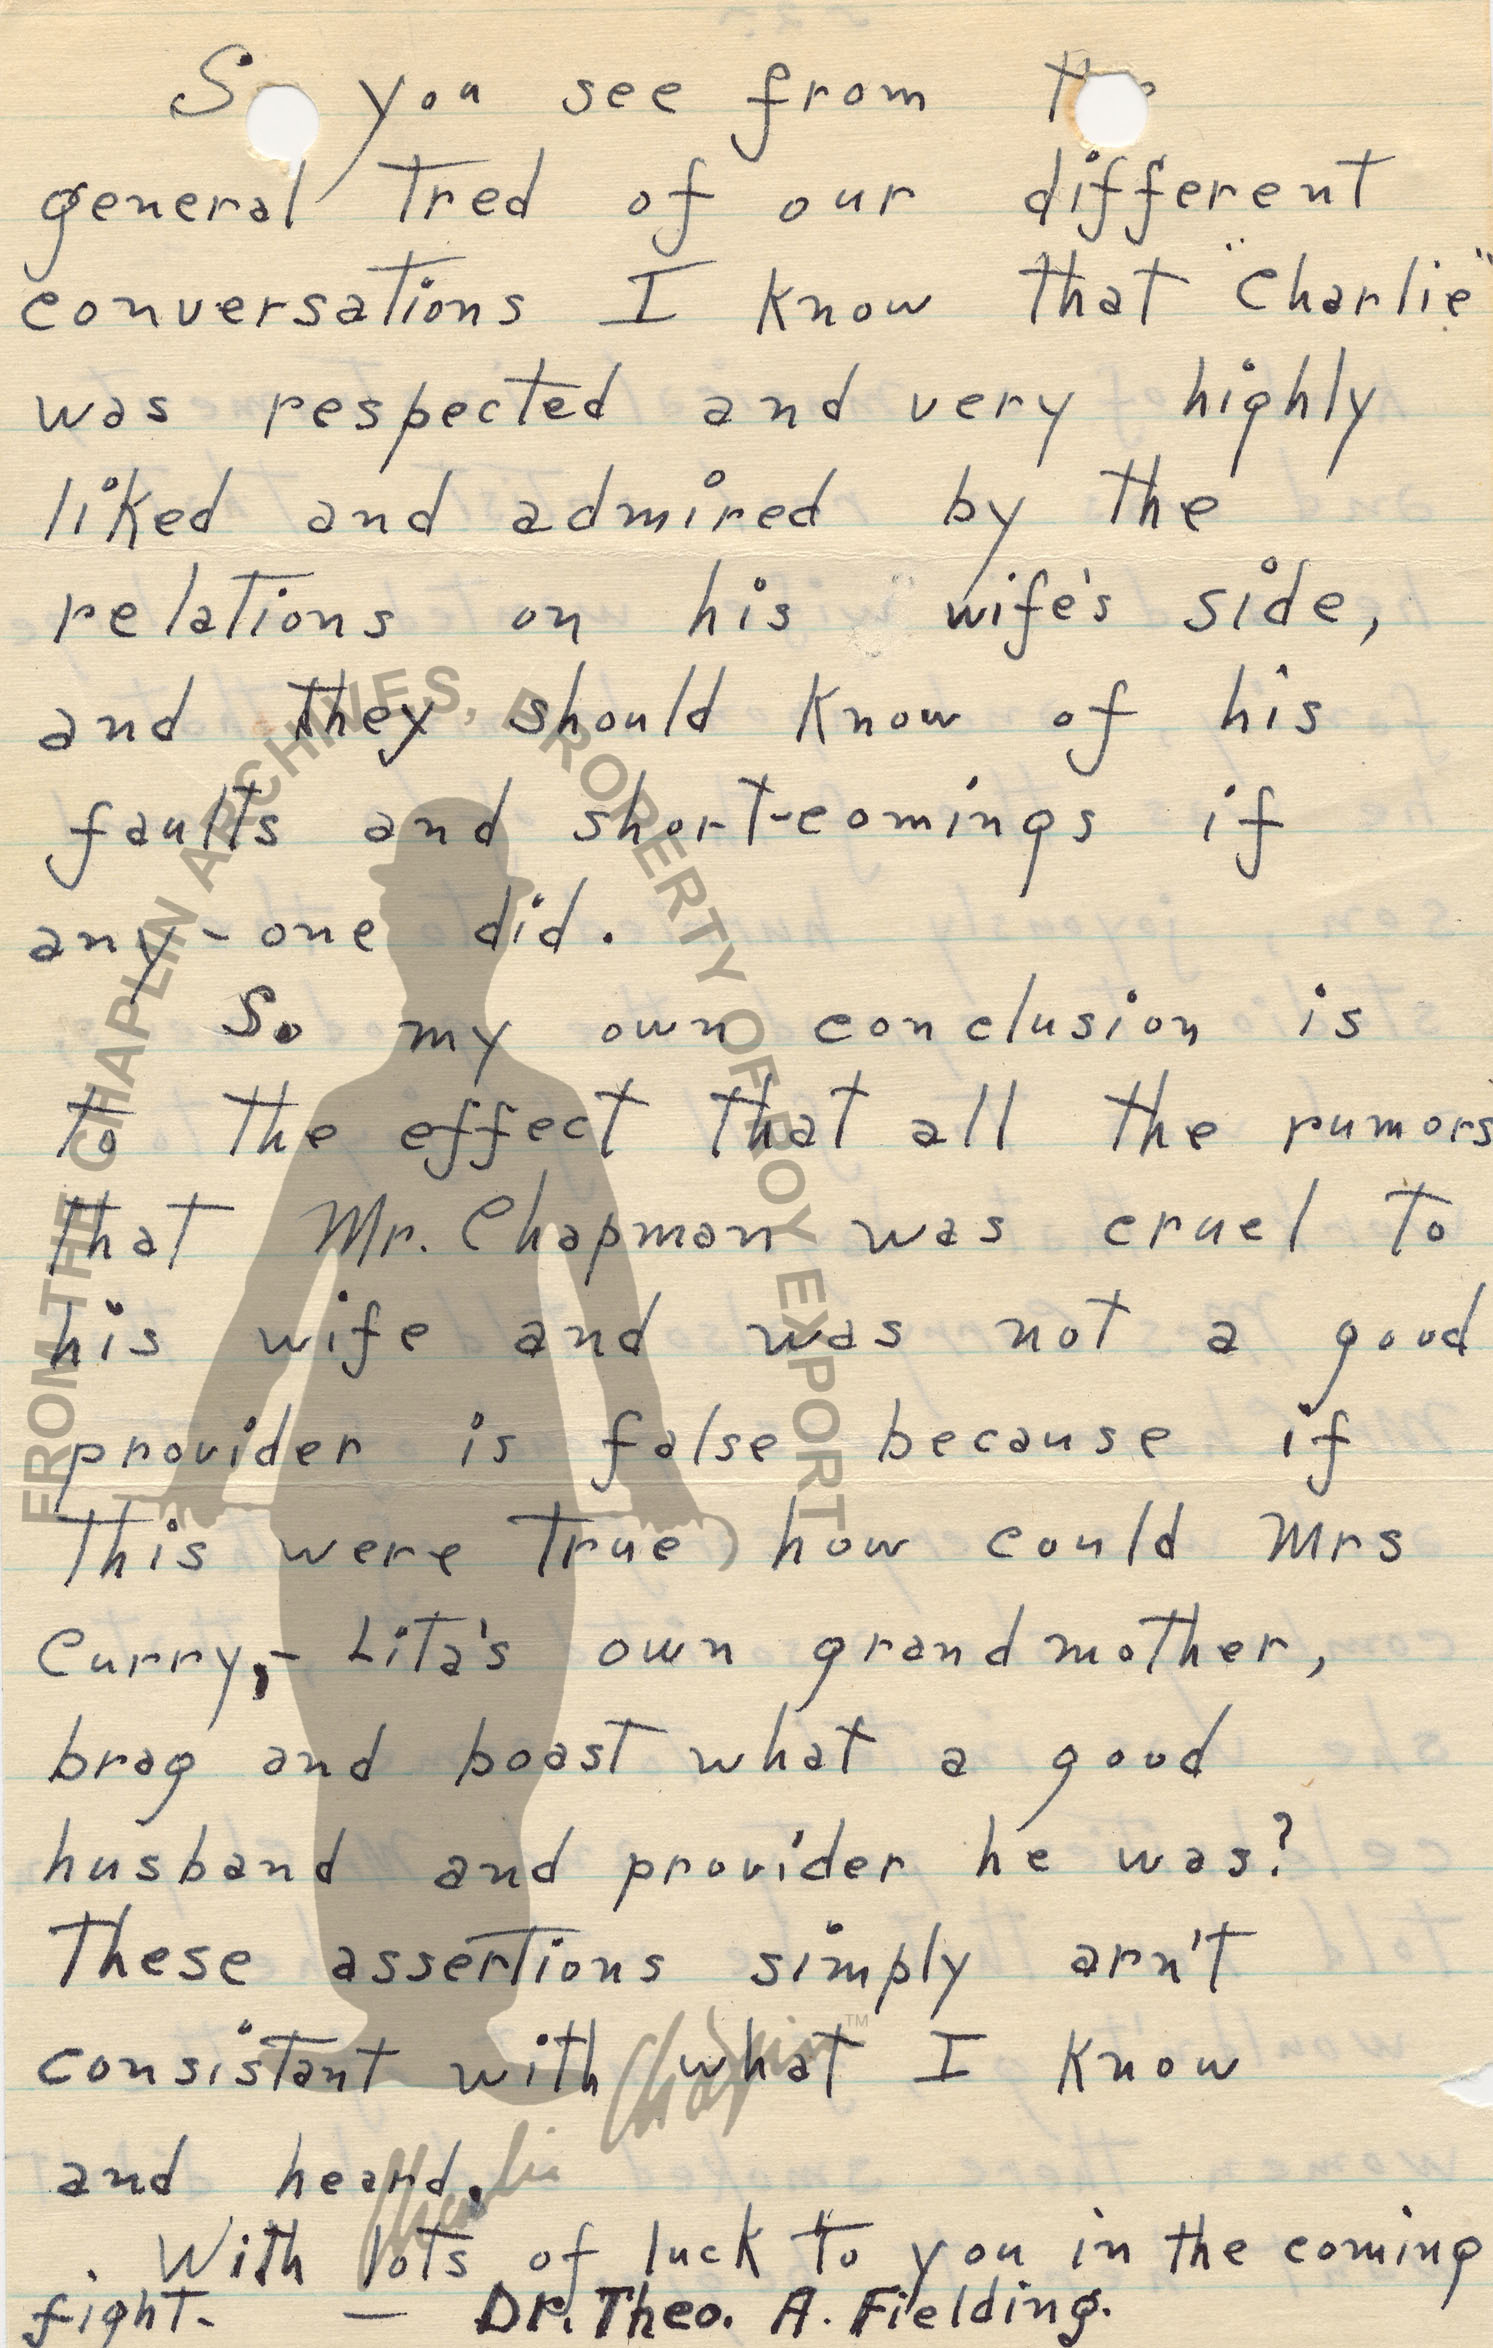 So you see from the
general tred of our different
conversations I know that "Charlie"
was respected and very highly
liked and admired by the
relations on his wife's side,
and they should know of his
faults and short-comings if
any-one did.
So my own conclusion is
to the effect that all the rumors
that Mr. Chapman was cruel to
his wife and was not a good
provider is false because if
this were true how could Mrs
Curry,- Lita's own grandmother,
brag and boast what a good
husband and provider he was?
These assertions simply arn't
consistant with what I know
and heard.
With lots of luck to you in the coming
fight. — Dr. Theo. A. Fielding.
FROM THE CHAPLIN ARCHIVES, PROPERTY OF ROY EXPORT
Charlie Chaplin™